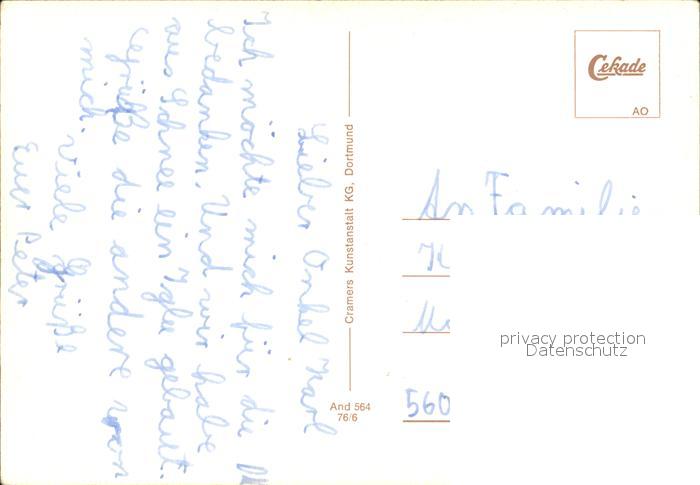 Lieber Onkel Karl
Ich möchte mich für die
bedanken. Und wir habe
aus Schnee ein Iglu gebaut.
Grüße die andere von
mich. Viele Grüße
Euer Peter
Cramers Kunstanstalt KG, Dortmund
And 564
76/6
Cekade
AO
An Familie
K
560
privacy protection
Datenschutz